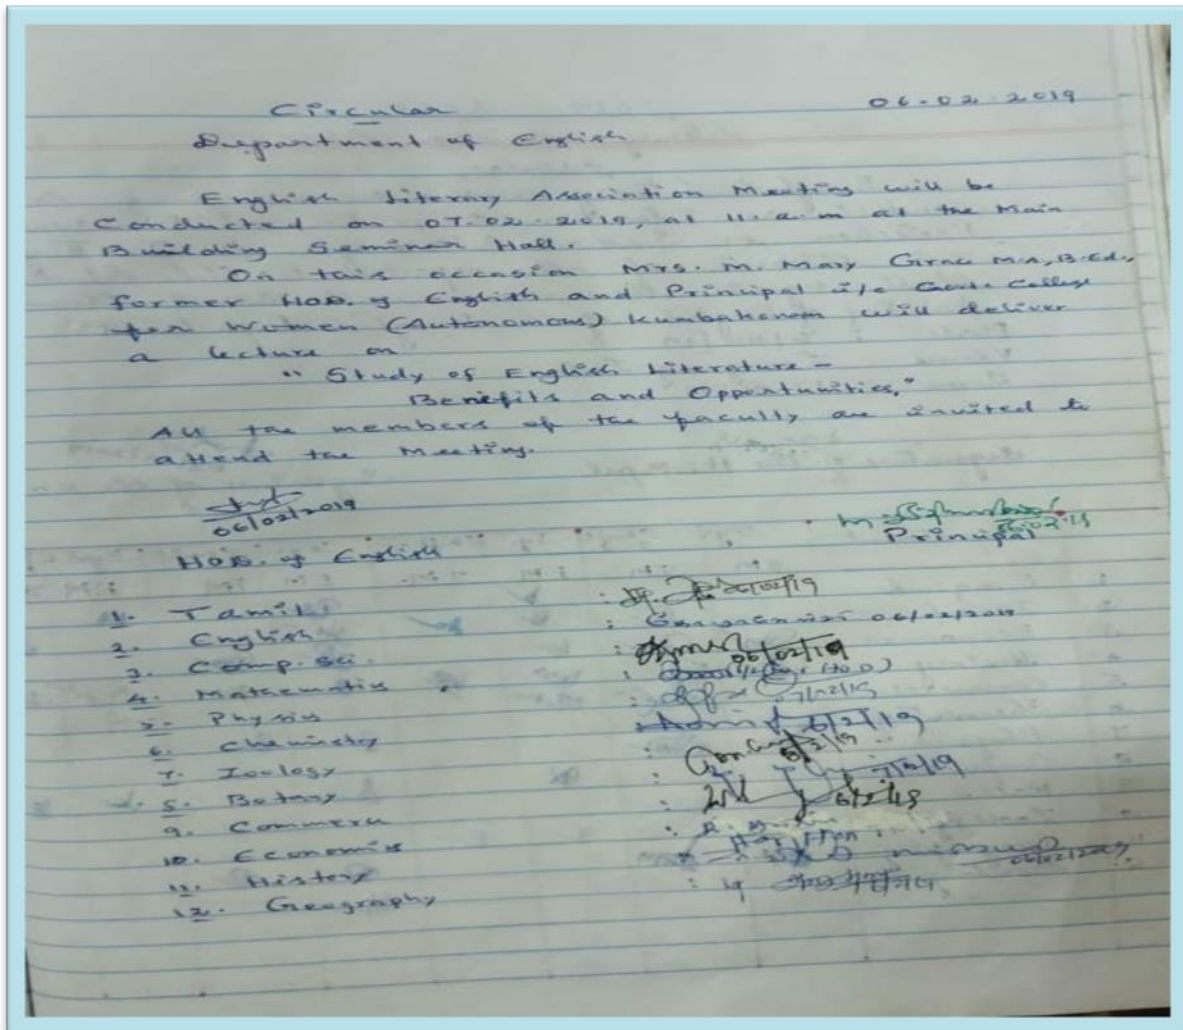 Circular 06-02-2019
Department of English
English Literary Association Meeting will be
Conducted on 07.02.2019, at 11.a.m at the Main
Building Seminar Hall.
On this occasion Mrs. M. Mary M.A, B.Ed.,
former HOD. of English and Principal i/c Govt. College
for Women (Autonomous) Kumbakonam will deliver
a lecture on
" Study of English Literature -
Benefits and Opportunities."
All the members of the faculty are invited to
attend the Meeting.
06/02/2019
HOD. of English
Principal
1. Tamil :
2. English : 06/02/2019
3. Comp. Sci. : 06/02/19
4. Mathematics :
5. Physics :
6. Chemistry 6/2/19
7. Zoology :
8. Botany : 7/2/19
9. Commerce : 6/2/19
10. Economics :
11. History 06/02/2019
12. Geography :